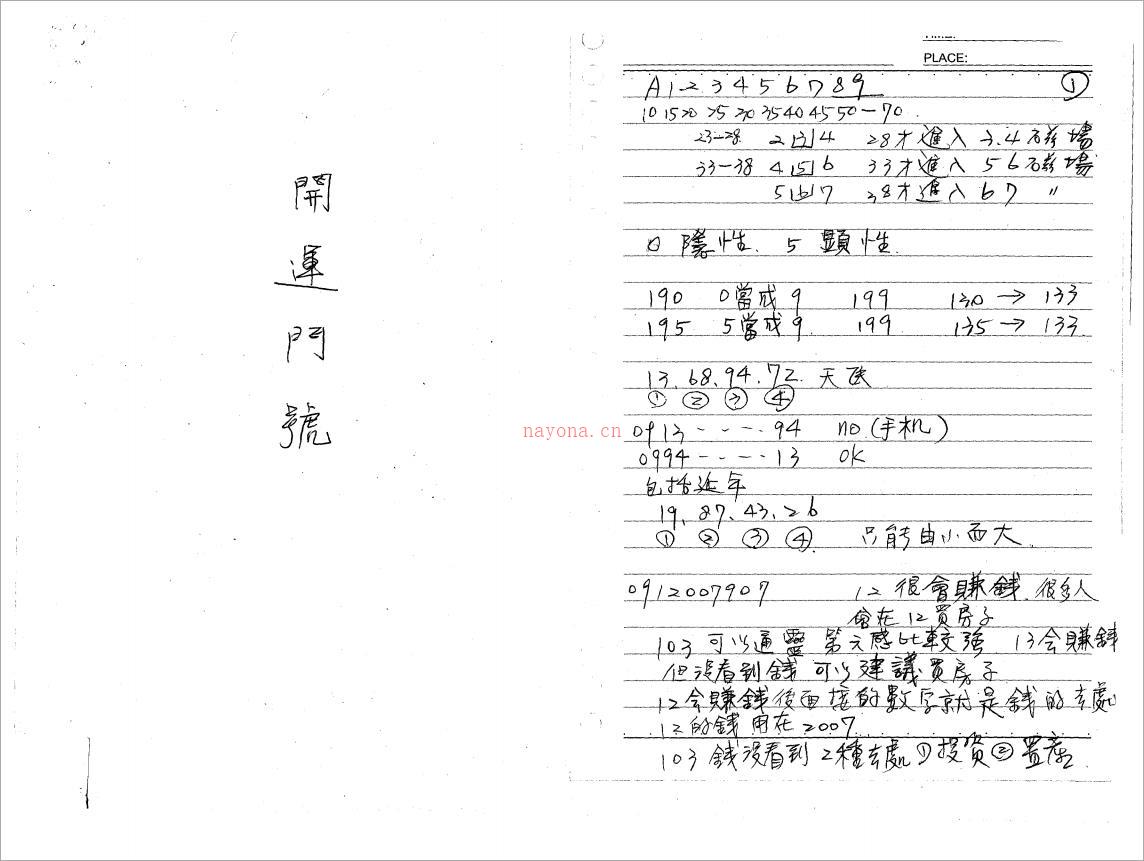 開
運
門
號
nayona.cn
PLACE:
A123456789 ①
10 15 20 25 30 35 40 45 50—70
23—28 2 3 4 28才進入 3.4磁場
33—38 4 5 6 33才進入 5 6磁場
5 6 7 38才進入 6 7 〃
0 隱性. 5 顯性.
190 0當成9 199 130 → 133
195 5當成9 199 135 → 133
13.68.94.72. 天醫
① ② ③ ④
0913-----94 no (手机)
0994-----13 OK
包括近年
19.87.43.26
① ② ③ ④ 只能由小而大.
0912007907 12 很會賺錢. 很多人
會在12買房子
103 可以通靈 第六感比較強 13会賺錢
但沒看到錢 可以建議買房子
12会賺錢後面接的數字就是錢的去處
12的錢用在2007
103 錢沒看到 2種去處 ①投資②置產.